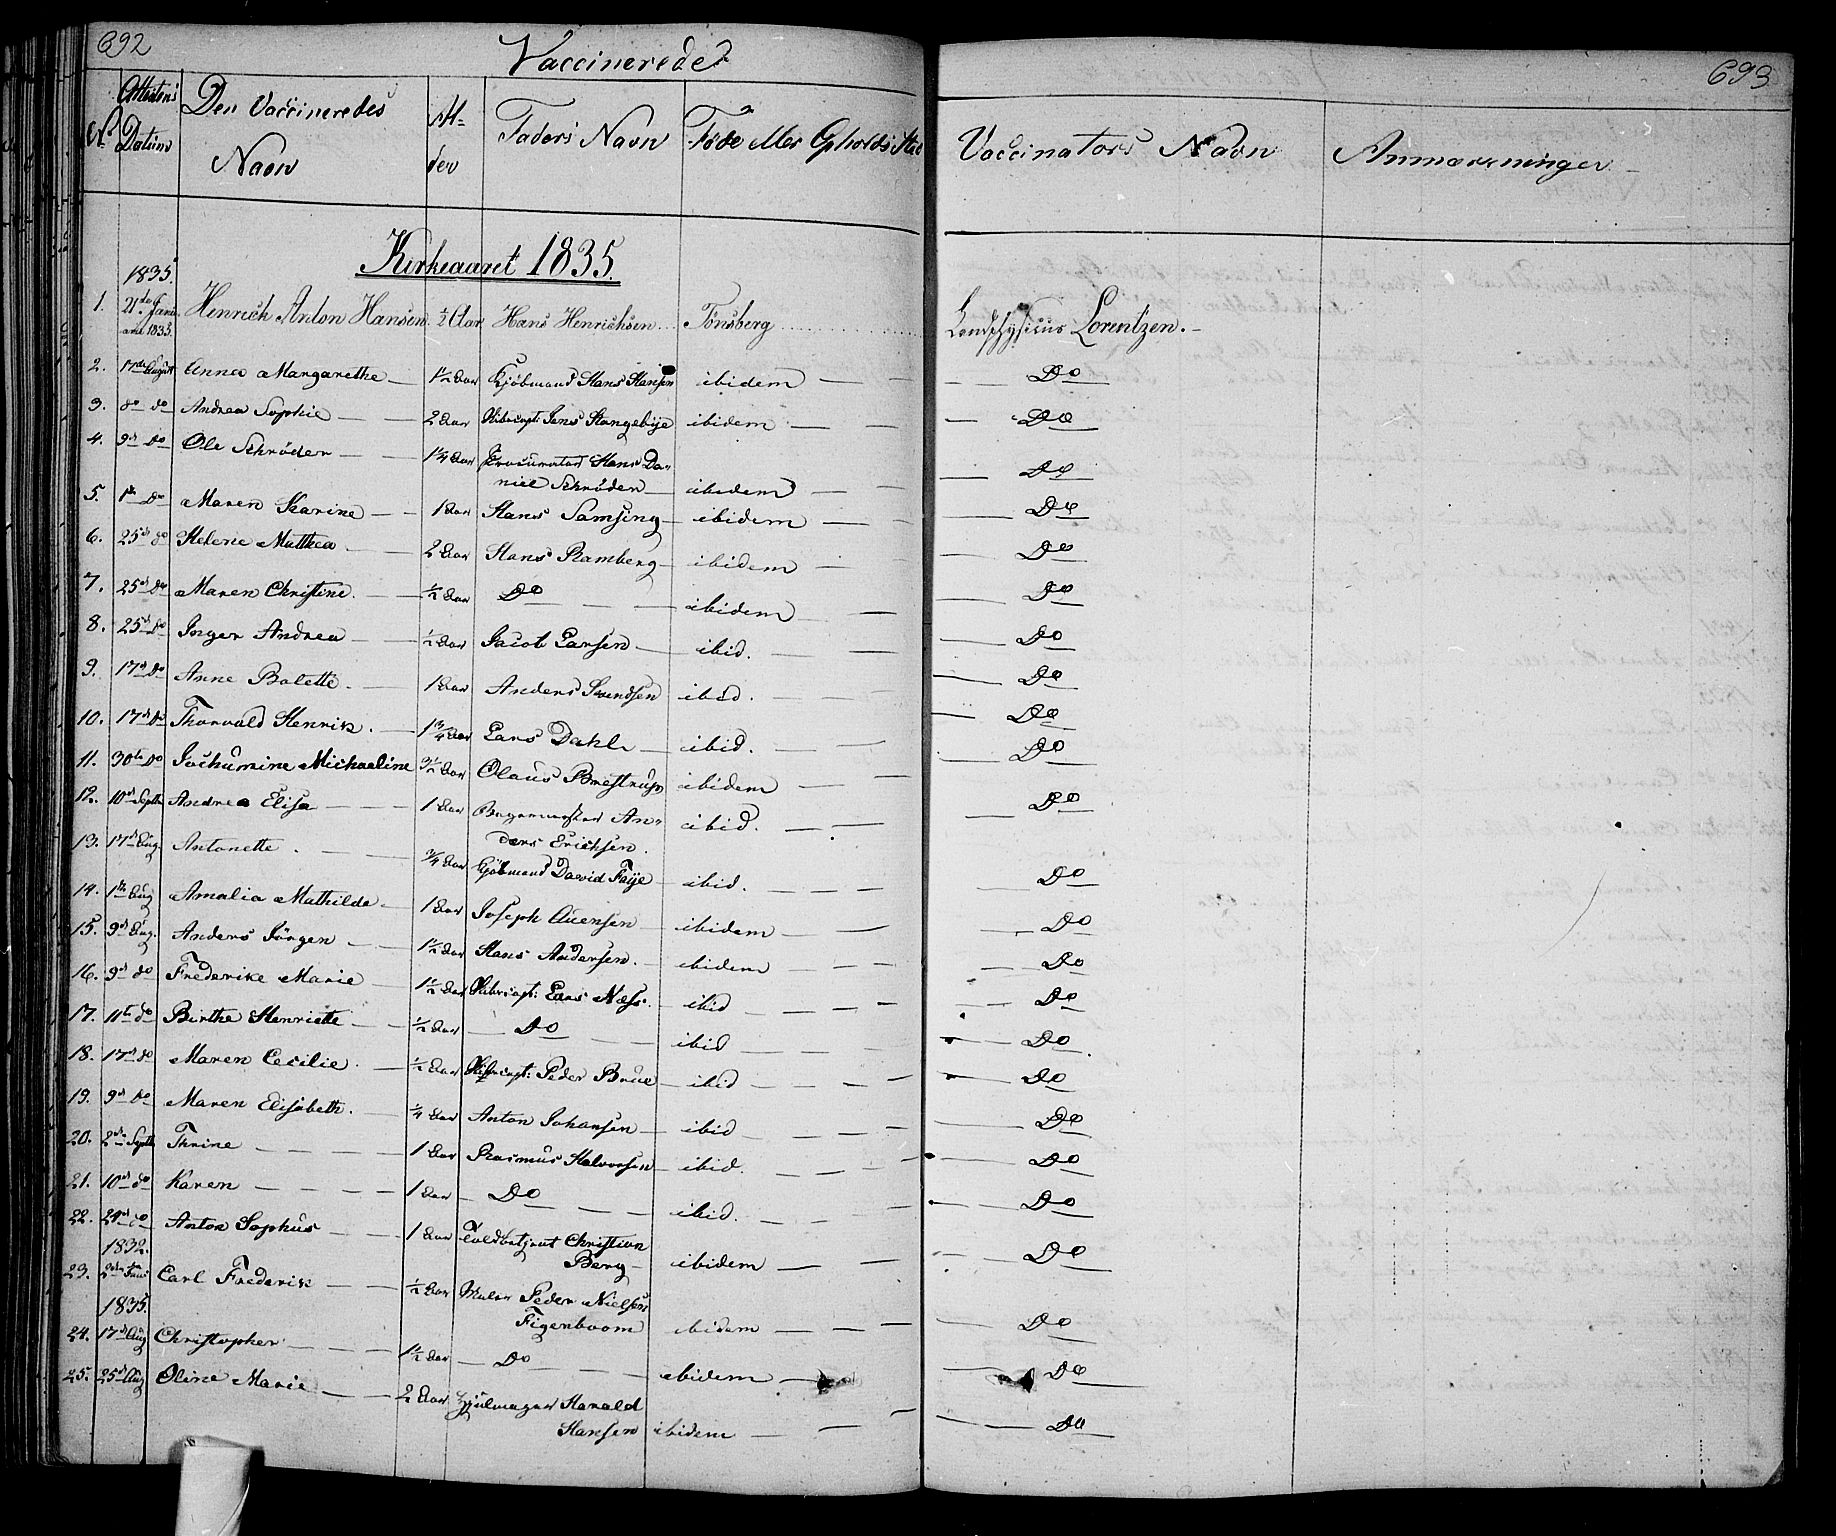 692
Vaccinerede
693
No Attestens Datum Den Vaccineredes Navn Alder Faders Navn Føde eller Opholds Sted Vaccinators Navn Anmærkninger
Kirkeaaret 1835.
1835.
1. 21de Januar 1835. Henrich Anton Hansen ½ Aar Hans Henrichsen Tönsberg Landphysicus Lorentzen.
2. 17de August Anna Margarethe 1½ Aar Kjøbmand Hans Hansen ibidem Do
3. 8de do Andrea Sophie 2 Aar Skibscapt: Jens Stangebye ibidem Do
4. 9de do Ole Schrøder 1¼ Aar Procurator Hans Da-
niel Schrøder ibidem Do
5. 1ste do Maren Karine 1 Aar Hans Samsing ibidem Do
6. 25de do Helene Mathea 2 Aar Hans Ramberg ibidem Do
7. 25de do Maren Christine. ½ Aar Do ibidem Do
8. 25de do Inger Andrea ½ Aar Jacob Larsen ibid. Do
9. 17de do Anne Bolette. 1 Aar Anders Svendsen ibid. Do
10. 17de do Thorvald Henrik. 1¾ Aar Lars Dahl ibid. Do
11. 30te do Jochumine Michaeline 3½ Aar Olaus Brestrup ibidem Do
12. 10de Septbr Andrea Elisa 1 Aar Bagermester An-
ders Erichsen. ibid. Do
13. 17de Aug. Antonette. ¾ Aar Kjöbmand David Faye ibid. Do
14. 1ste Aug Amalia Mathilde 1 Aar Joseph Auensen ibidem Do
15. 9de Aug. Anders Jörgen 1½ Aar Hans Andersen. ibidem Do
16. 9de do Frederike Marie 1½ Aar Skibscapt: Lars Næss. ibid Do
17. 11te do Birthe Henriette ½ Aar Do ibid Do
18. 17de do Maren Cecilie. ½ Aar Skibscapt: Peder Brue ibid Do
19. 9de do Maren Elisabeth. ¼ Aar Anton Johansen ibid Do
20. 2den Septbr Thrine 1 Aar Rasmus Halvorsen ibid. Do
21. 10de do Karen 1 Aar Do ibid. Do
22. 24de do Anton Sophus 1 Aar Toldbetjent Christian
Berg ibidem Do
1832.
23. 2den Carl Frederik ½ Aar Maler Peder Nielsen
Figenboom ibidem Do
1835.
24. 17de Aug Christopher 1½ Aar Do ibidem Do
25. 25de Aug Oline Marie 2 Aar Hjulmager Harald
Hansen ibidem Do